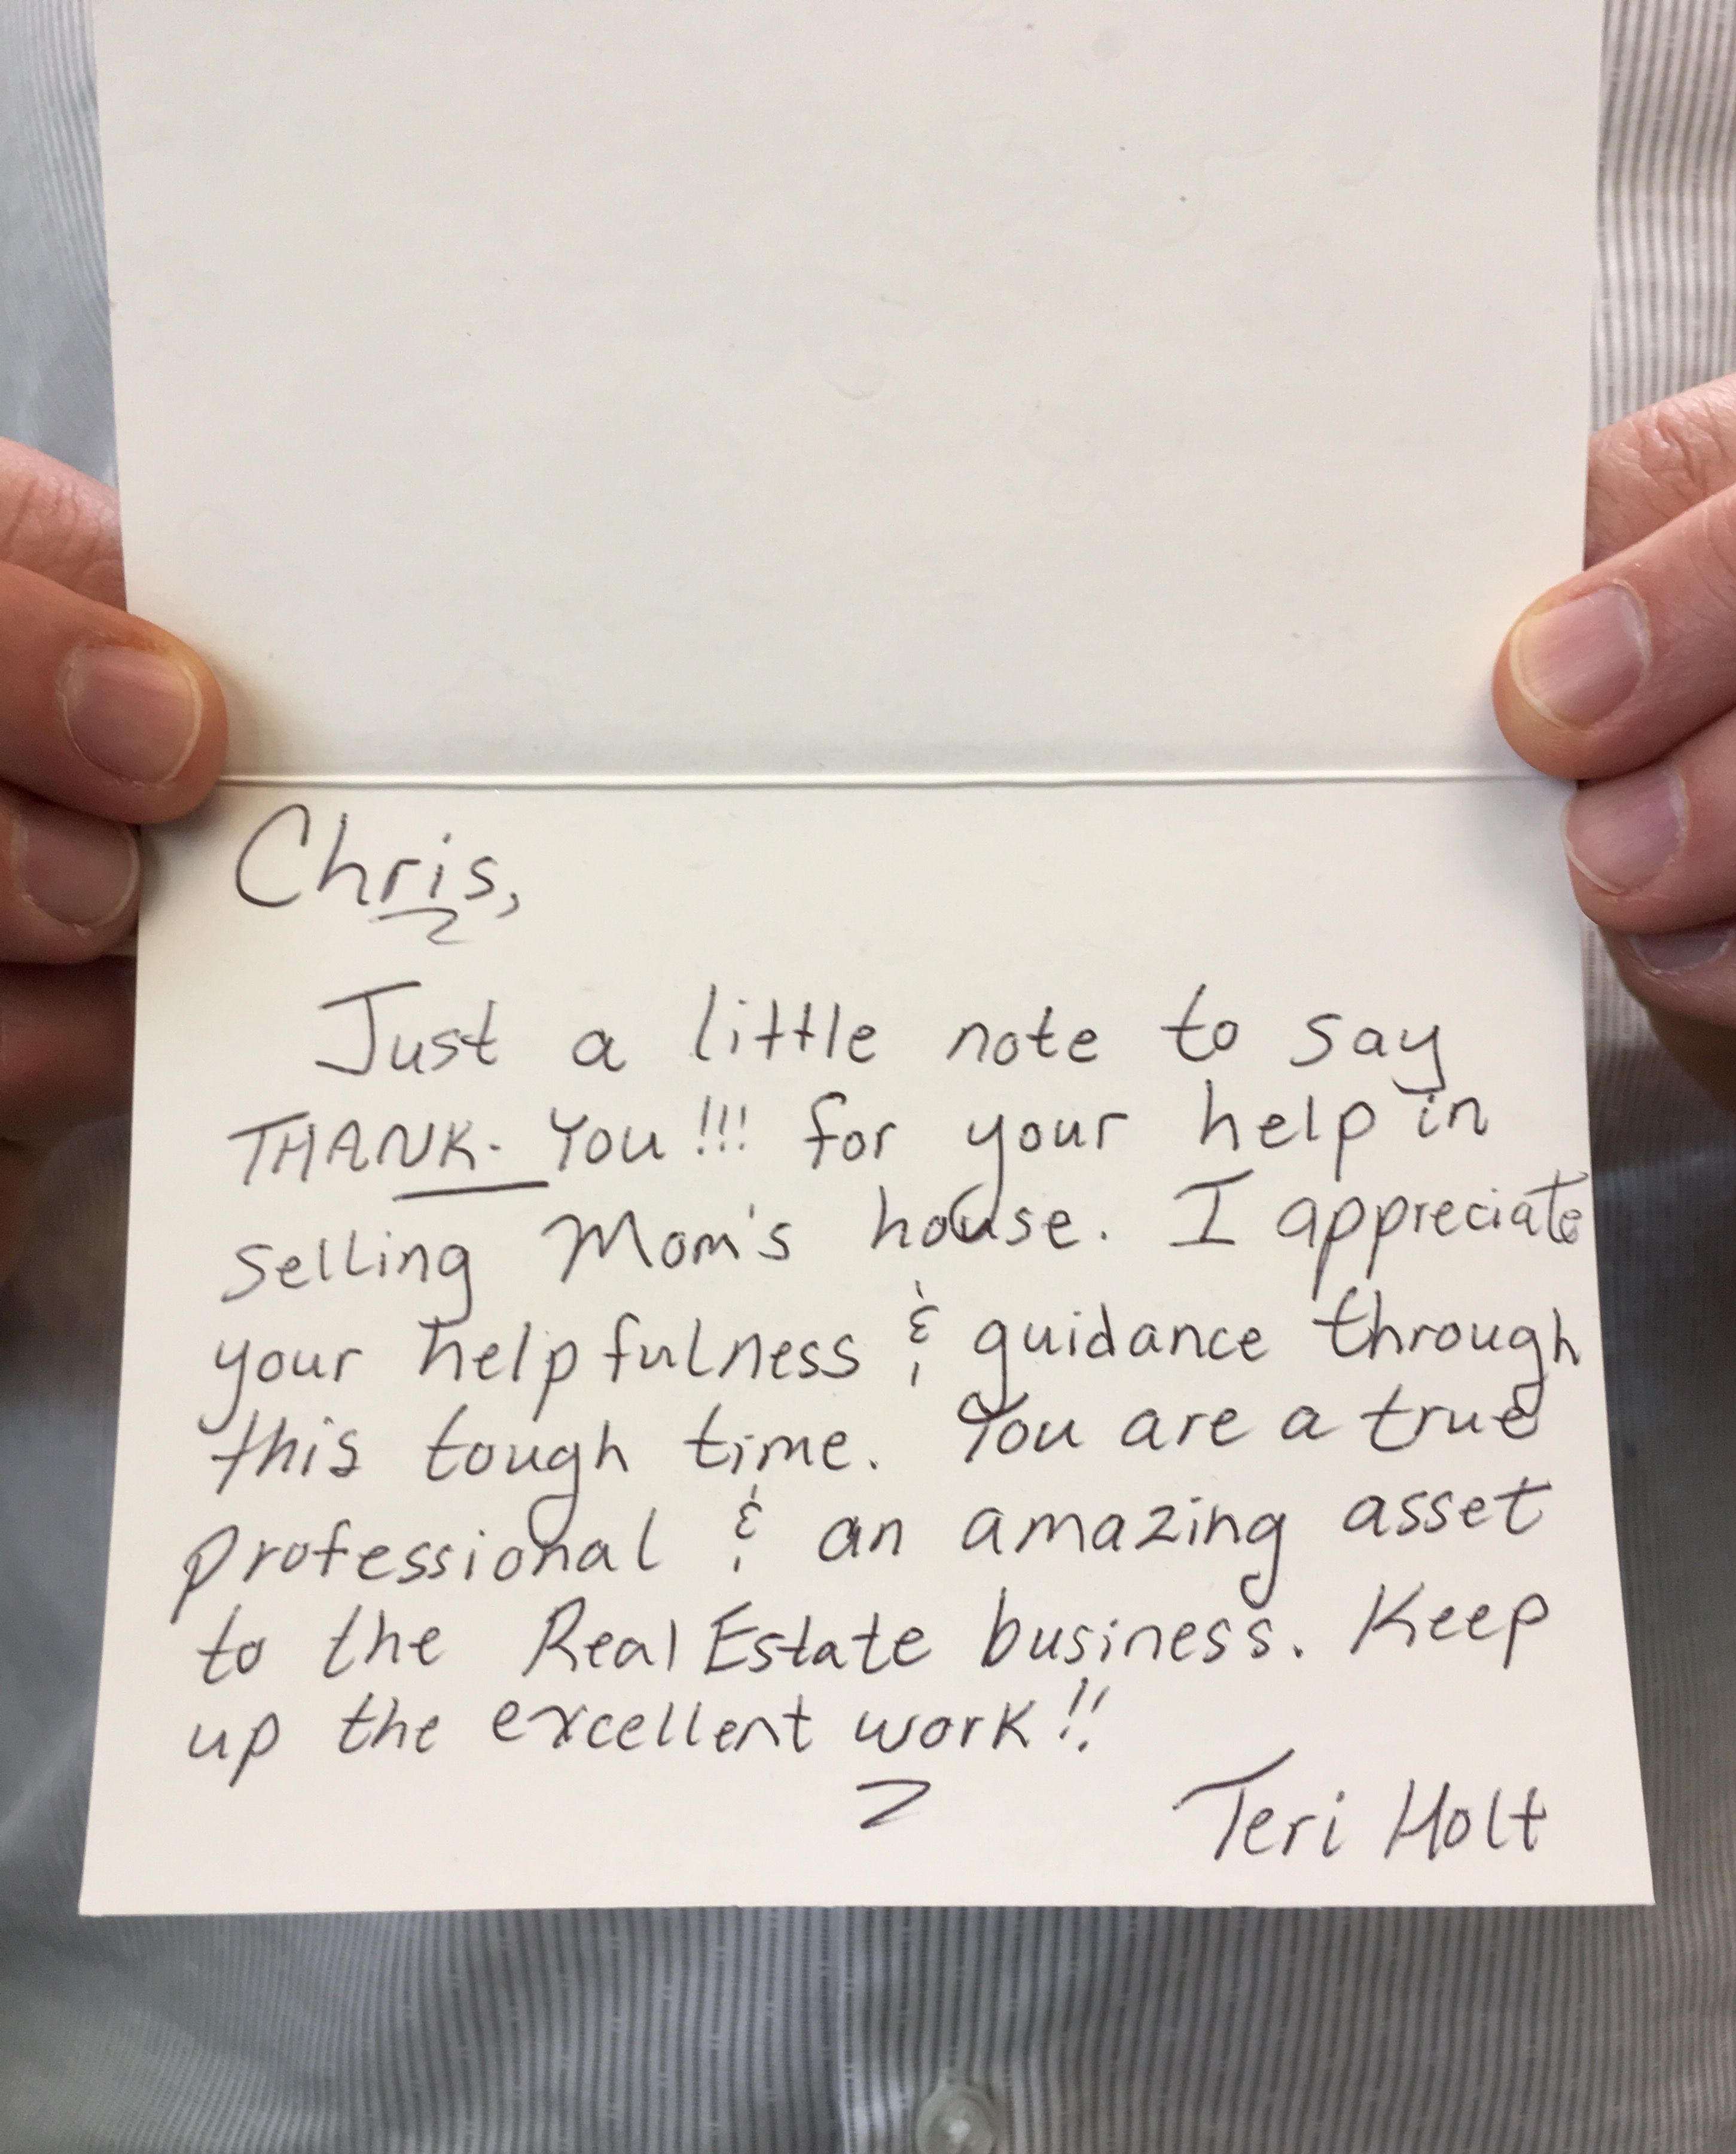 Chris,
Just a little note to say
THANK-You!!! for your help in
selling Mom's house. I appreciate
your helpfulness & guidance through
this tough time. You are a true
professional & an amazing asset
to the Real Estate business. Keep
up the excellent work!!
Teri Holt